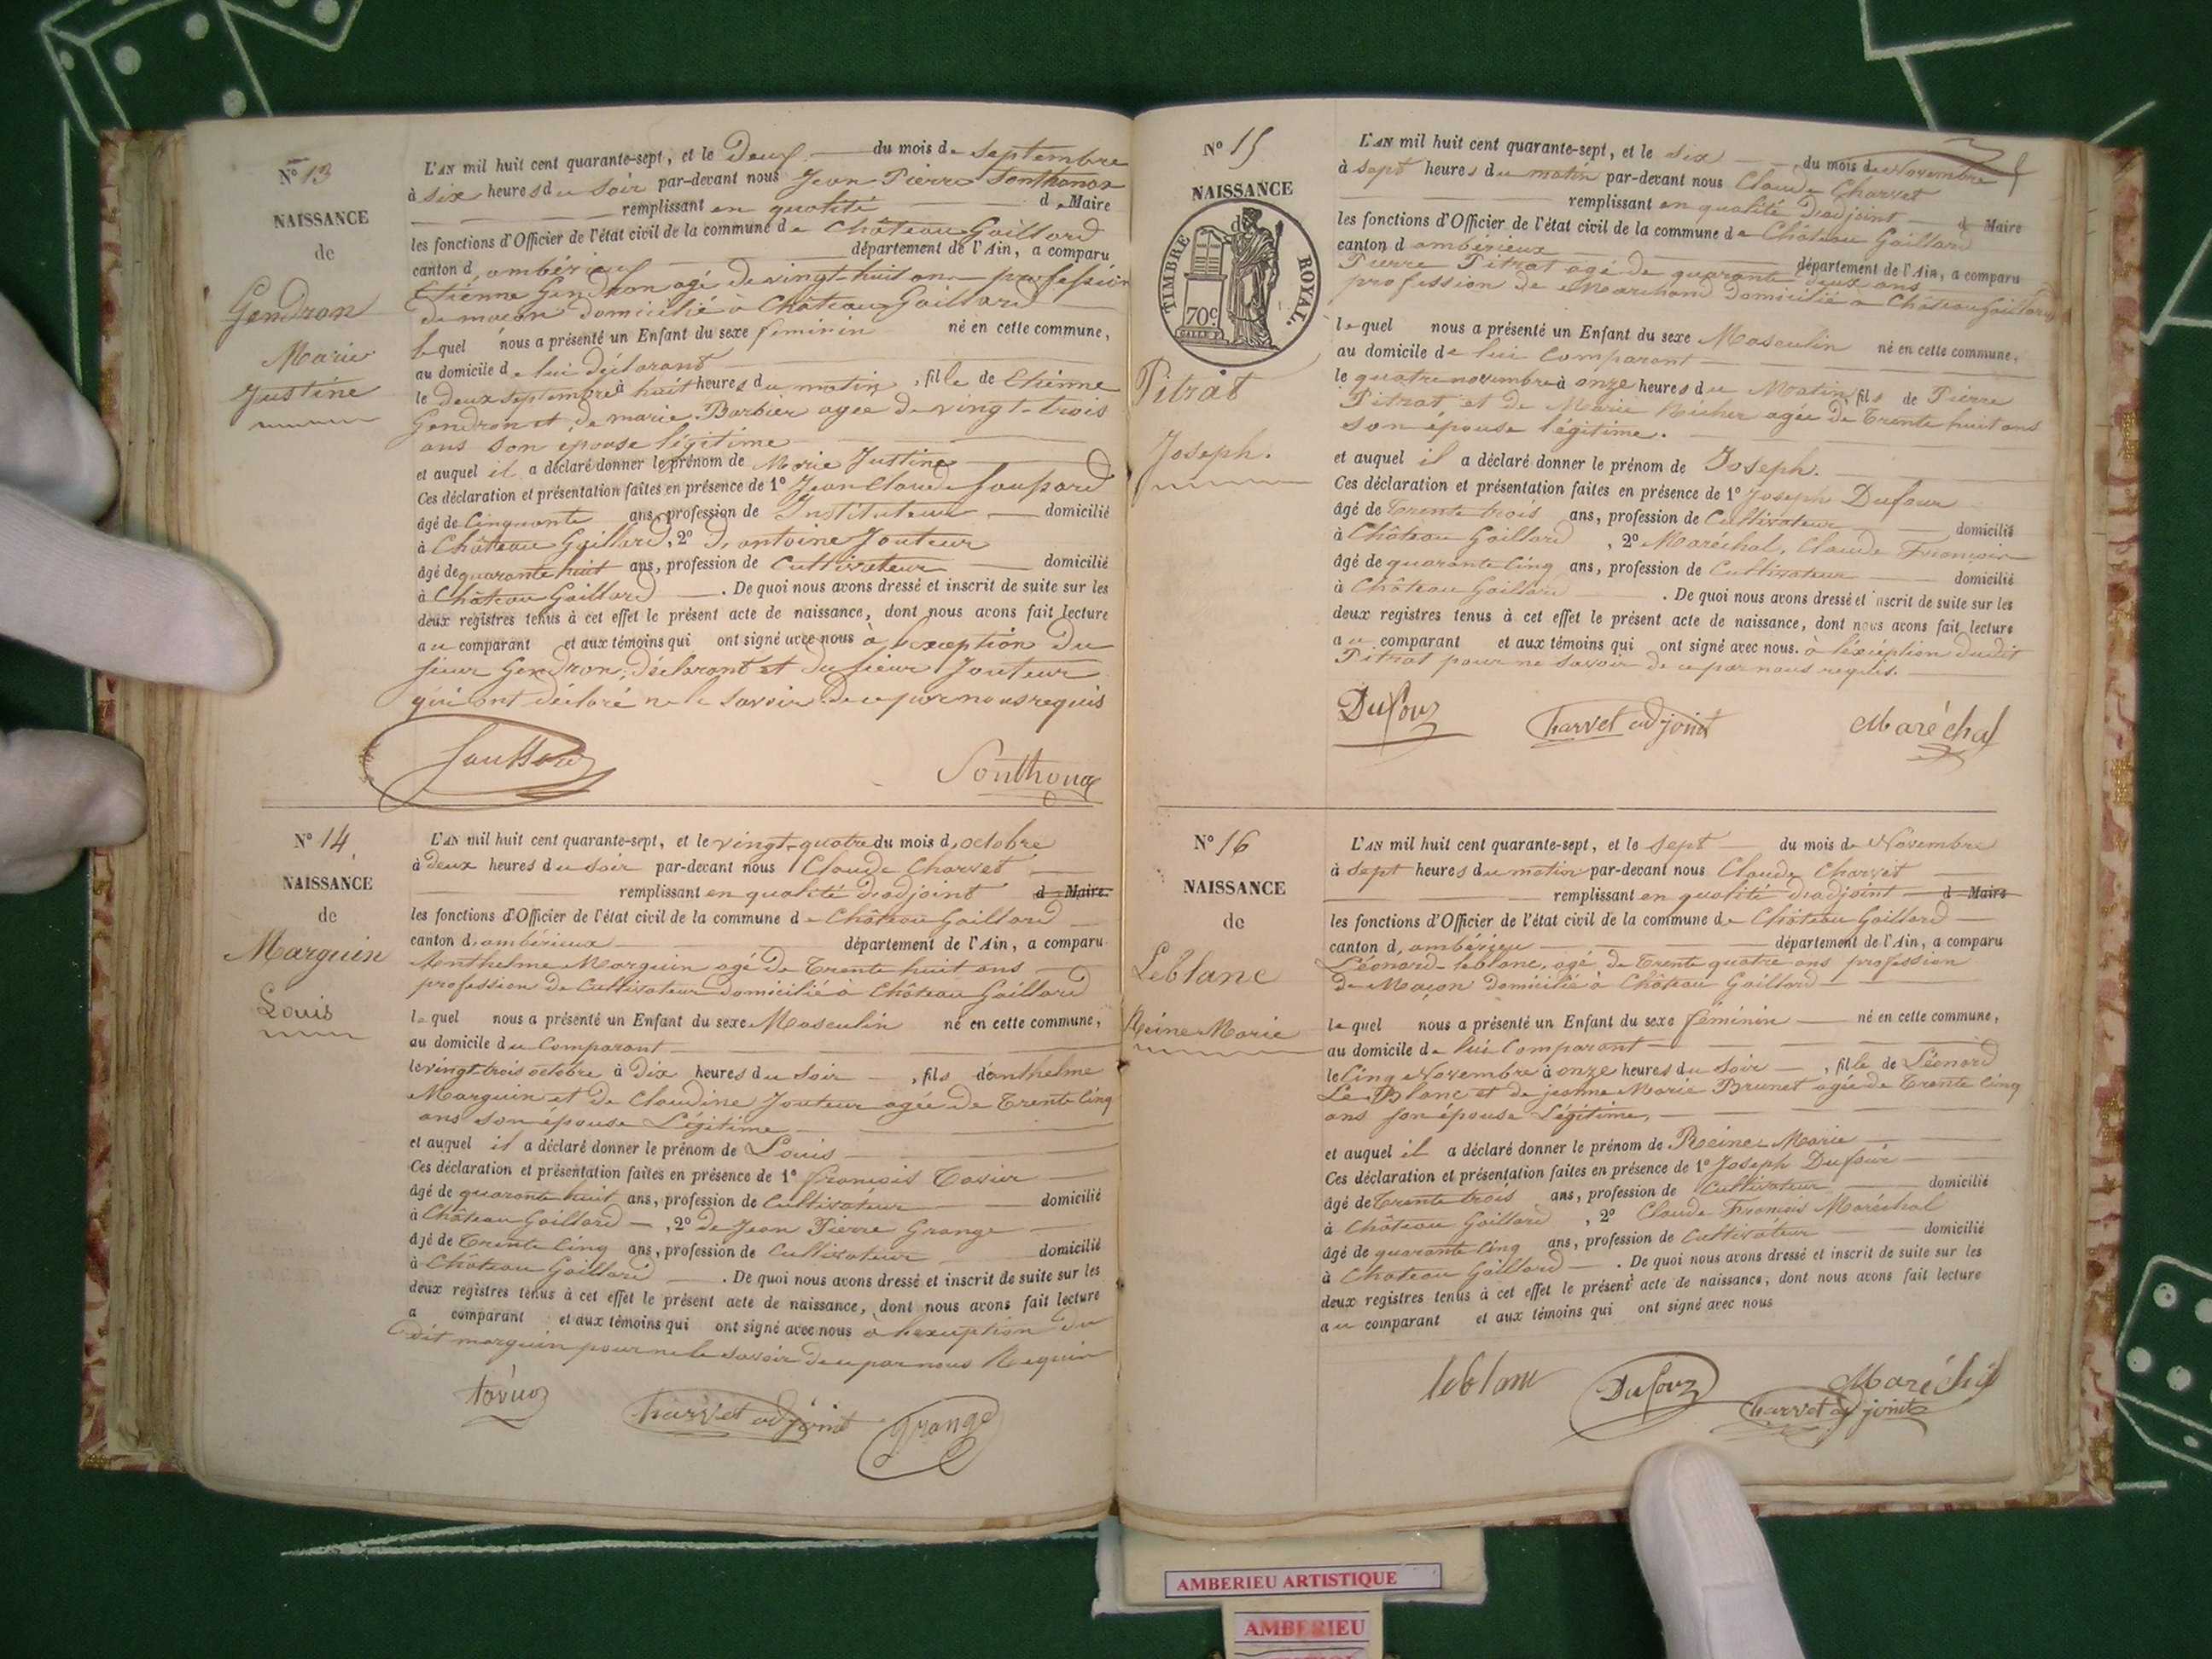 N° 13
NAISSANCE
de
Gendron
Marie
Justine
L'AN mil huit cent quarante-sept, et le Deux du mois de Septembre
à six heures du Soir par-devant nous Jean Pierre Sonthonax
remplissant en qualité de Maire
les fonctions d'Officier de l'état civil de la commune de Château Gaillard
canton d'ambérieux département de l'Ain, a comparu
Etienne Gendron agé de vingt-huit ans profession
de maçon domicilié à Château Gaillard
lequel nous a présenté un Enfant du sexe féminin né en cette commune,
au domicile de lui déclarant
le deux septembre à huit heures du matin, fille de Etienne
Gendron et de marie Barbier agée de vingt-trois
ans son épouse légitime
et auquel il a déclaré donner le prénom de Marie Justine
Ces déclaration et présentation faites en présence de 1° Jean Claude
âgé de Cinquante ans, profession de Instituteur domicilié
à Château Gaillard, 2° D'antoine Jouteur
âgé de quarante huit ans, profession de Cultivateur domicilié
à Château Gaillard. De quoi nous avons dressé et inscrit de suite sur les
deux registres tenus à cet effet le présent acte de naissance, dont nous avons fait lecture
au comparant et aux témoins qui ont signé avec nous à l'exception du
sieur Gendron, déclarant et du sieur Jouteur
qui ont déclaré ne le savoir de ce par nous requis
Sonthonax
N° 14
NAISSANCE
de
Marguin
Louis
L'AN mil huit cent quarante-sept, et le vingt-quatre du mois d'octobre
à deux heures du soir par-devant nous Claude Charvet
remplissant en qualité d'adjoint d Maire
les fonctions d'Officier de l'état civil de la commune de Château Gaillard
canton d'ambérieux département de l'Ain, a comparu
Anthelme Marguin agé de trente huit ans
profession de Cultivateur domicilié à Château Gaillard
lequel nous a présenté un Enfant du sexe Masculin né en cette commune,
au domicile du Comparant
le vingt-trois octobre à dix heures du soir, fils d'anthelme
Marguin et de Claudine Jouteur agée de trente cinq
ans son épouse Légitime
et auquel il a déclaré donner le prénom de Louis
Ces déclaration et présentation faites en présence de 1° François
âgé de quarante huit ans, profession de Cultivateur domicilié
à Château Gaillard, 2° de Jean Pierre Grange
âgé de trente cinq ans, profession de Cultivateur domicilié
à Château Gaillard. De quoi nous avons dressé et inscrit de suite sur les
deux registres tenus à cet effet le présent acte de naissance, dont nous avons fait lecture
a comparant et aux témoins qui ont signé avec nous à l'exception du
dit marguin pour ne le savoir de ce par nous Requis
Charvet adjoint Grange
N° 15
NAISSANCE
TIMBRE ROYAL.
70c
Pitrat
Joseph.
L'AN mil huit cent quarante-sept, et le six du mois de Novembre
à sept heures du matin par-devant nous Claude Charvet
remplissant en qualité d'adjoint d Maire
les fonctions d'Officier de l'état civil de la commune de Château Gaillard
canton d'ambérieux département de l'Ain, a comparu
Pierre Pitrat agé de quarante deux ans
profession de Marchand domicilié à Château Gaillard
lequel nous a présenté un Enfant du sexe Masculin né en cette commune,
au domicile de lui Comparant
le quatre novembre à onze heures du Matin, fils de Pierre
Pitrat et de Marie agée de trente huit ans
son épouse légitime.
et auquel il a déclaré donner le prénom de Joseph.
Ces déclaration et présentation faites en présence de 1° Joseph Dufour
âgé de trente trois ans, profession de Cultivateur domicilié
à Château Gaillard, 2° Maréchal, Claude François
âgé de quarante cinq ans, profession de Cultivateur domicilié
à Château Gaillard. De quoi nous avons dressé et inscrit de suite sur les
deux registres tenus à cet effet le présent acte de naissance, dont nous avons fait lecture
au comparant et aux témoins qui ont signé avec nous. à l'exéption dudit
Pitrat pour ne savoir de ce par nous requis.
Dufour Charvet adjoint Maréchal
N° 16
NAISSANCE
de
Leblanc
Reine Marie
L'AN mil huit cent quarante-sept, et le sept du mois de Novembre
à sept heures du matin par-devant nous Claude Charvet
remplissant en qualité d'adjoint d Maire
les fonctions d'Officier de l'état civil de la commune de Château Gaillard
canton d'ambérieu département de l'Ain, a comparu
Léonard leblanc, agé de trente quatre ans profession
de Maçon domicilié à Château Gaillard
lequel nous a présenté un Enfant du sexe féminin né en cette commune,
au domicile de lui Comparant
le Cinq Novembre à onze heures du soir, fille de Léonard
Le Blanc et de jeanne Marie Brunet agée de trente cinq
ans son épouse Légitime,
et auquel il a déclaré donner le prénom de Reine Marie
Ces déclaration et présentation faites en présence de 1° Joseph Dufour
âgé de trente trois ans, profession de Cultivateur domicilié
à Château Gaillard, 2° Claude François Maréchal
âgé de quarante cinq ans, profession de Cultivateur domicilié
à Chateau Gaillard. De quoi nous avons dressé et inscrit de suite sur les
deux registres tenus à cet effet le présent acte de naissance, dont nous avons fait lecture
au comparant et aux témoins qui ont signé avec nous
leblanc Dufour Maréchal
Charvet adjoint
AMBERIEU ARTISTIQUE
AMBERIEU